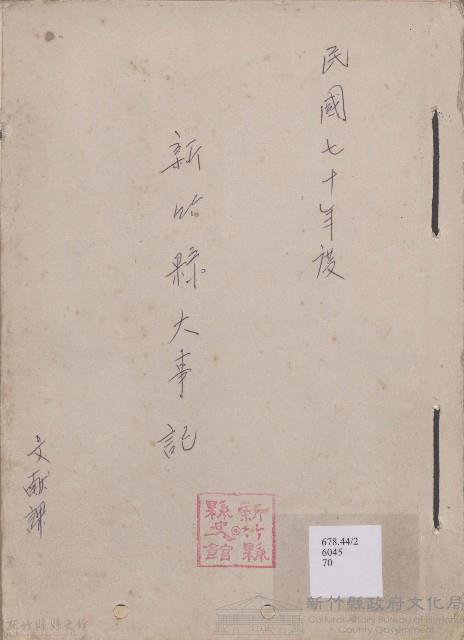 民國七十年度
新竹縣大事記
文献課
新竹縣
縣史館
678.44/2
6045
70
新竹縣政府文化局
Cultural Affairs Bureau of Hsinchu
County Government
新竹縣縣史館